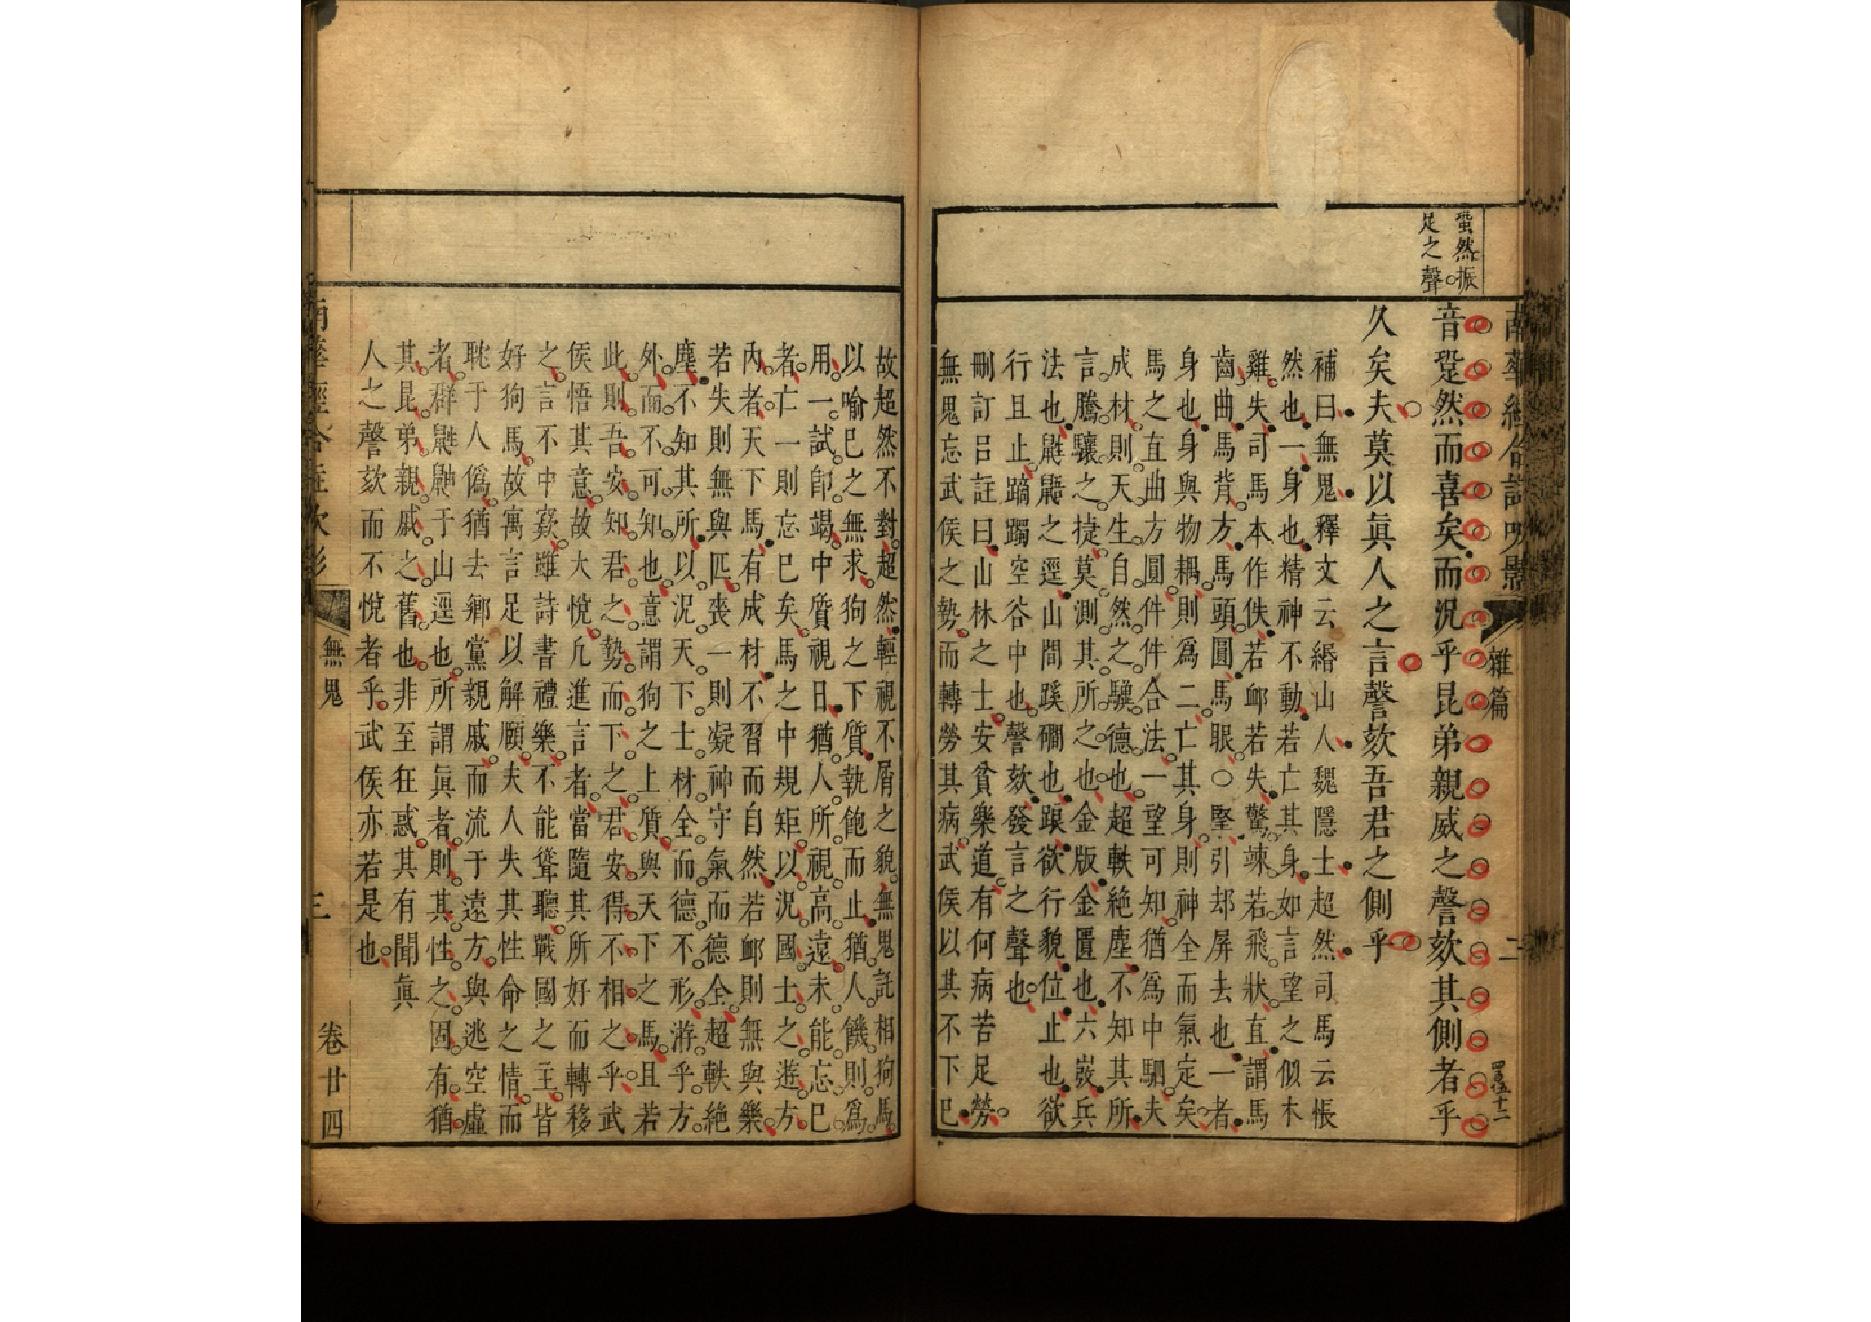 蛩然振
足之聲
雜篇
二
音跫然而喜矣而況乎昆弟親戚之謦欬其側者乎
久矣夫莫以眞人之言謦欬吾君之側乎
補曰無鬼釋文云緡山人魏隱士超然司馬云悵
然也一身也精神不動若亡其身如言望之似木
雞失司馬本作佚若䘏若失驚竦若飛狀直謂馬
齒曲馬背方馬頭圓馬眼○堅引却屏去也一者
身也身與物耦則爲二亡其身則神全而氣定矣
馬之直曲方圓件件合法一望可知猶爲中駟夫
成材則天生自然之驥德也超軼絕塵不知其所
言騰驤之捷莫測其所之也金版金匱也六弢兵
法也鼪鼬之逕山間蹊磵也踉欲行貌位止也欲
行且止蹢躅空谷中也謦欬發言之聲也
刪訂呂註曰山林之士安貧樂道有何病苦足勞
無鬼忘武侯之勢而轉勞其病武侯以其不下已
故超然不對超然輕視不屑之貌無鬼託相狗馬
以喻已之無求狗之下質執飽而止猶人饑則爲
用一試卽竭中質視日猶人所視高遠未能忘巳
者亡一則忘巳矣馬之中規矩以況國士之遊方
內者天下馬有成材不習而自然若䘏則無與樂
若失則無與匹喪一則凝神守氣而德全超軼絕
塵不知其所以況天下士材全而德不形游乎方
外而不可知也意謂狗之上質與天下之馬且若
此則吾安知君之勢而下之君安得不相之乎武
侯悟其意故大悅凢進言者當隨其所好而轉移
之言不中窾雖詩書禮樂不能聳聽戰國之主皆
好狗馬故寓言足以解願夫人失其性命之情而
耽于人僞猶去鄉黨親戚而流于遠方與逃空虛
者群鼪鼬于山逕也所謂眞者則其性之固有猶
其昆弟親戚之舊也非至狂惑其有聞眞
人之謦欬而不悅者乎武侯亦若是也
無鬼
三
卷廿四